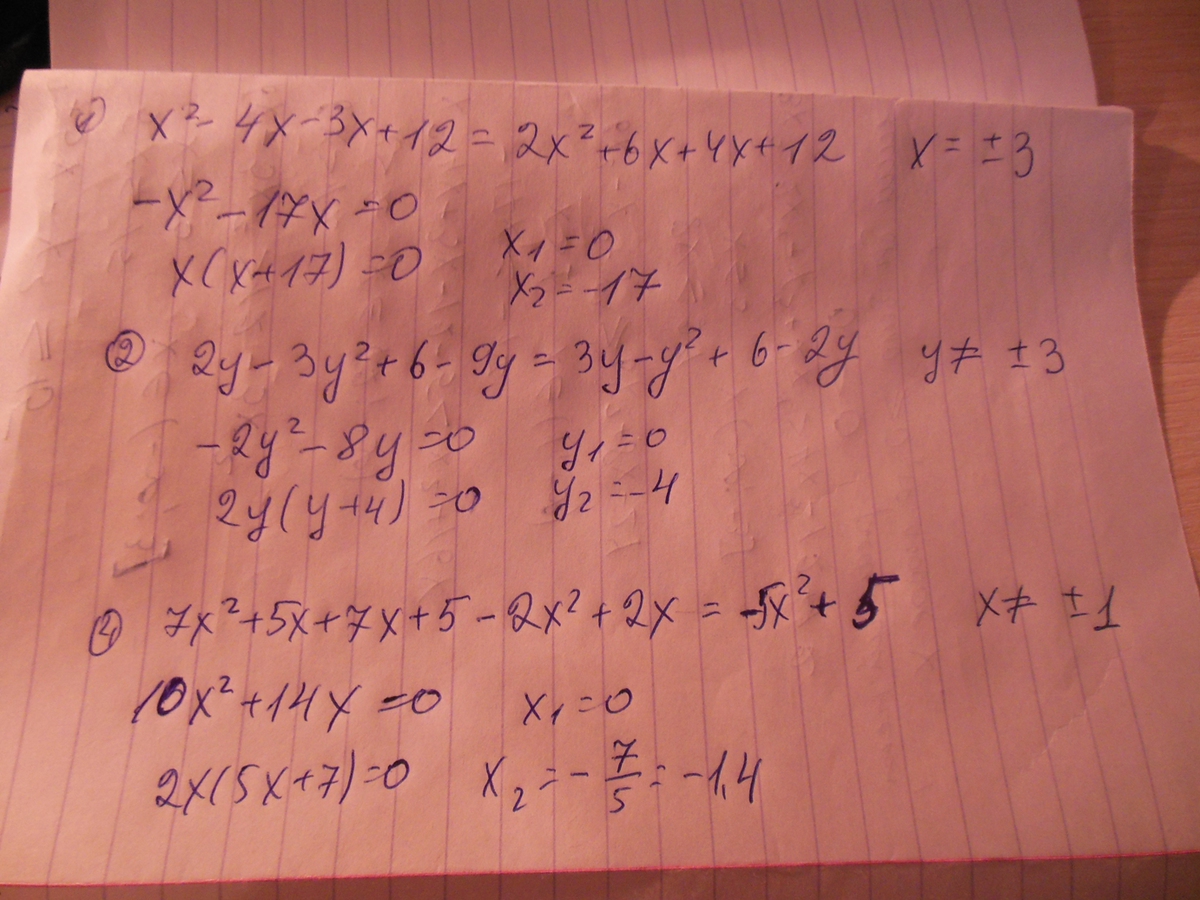 1) x² - 4x - 3x + 12 = 2x² + 6x + 4x + 12 x = ±3
-x² - 17x = 0
x(x + 17) = 0 x₁ = 0
x₂ = -17
② 2y - 3y² + 6 - 9y = 3y - y² + 6 - 2y y ≠ ±3
-2y² - 8y = 0 y₁ = 0
2y(y + 4) = 0 y₂ = -4
④ 7x² + 5x + 7x + 5 - 2x² + 2x = -5x² + 5 x ≠ ±1
10x² + 14x = 0 x₁ = 0
2x(5x + 7) = 0 x₂ = -7/5 = -1,4